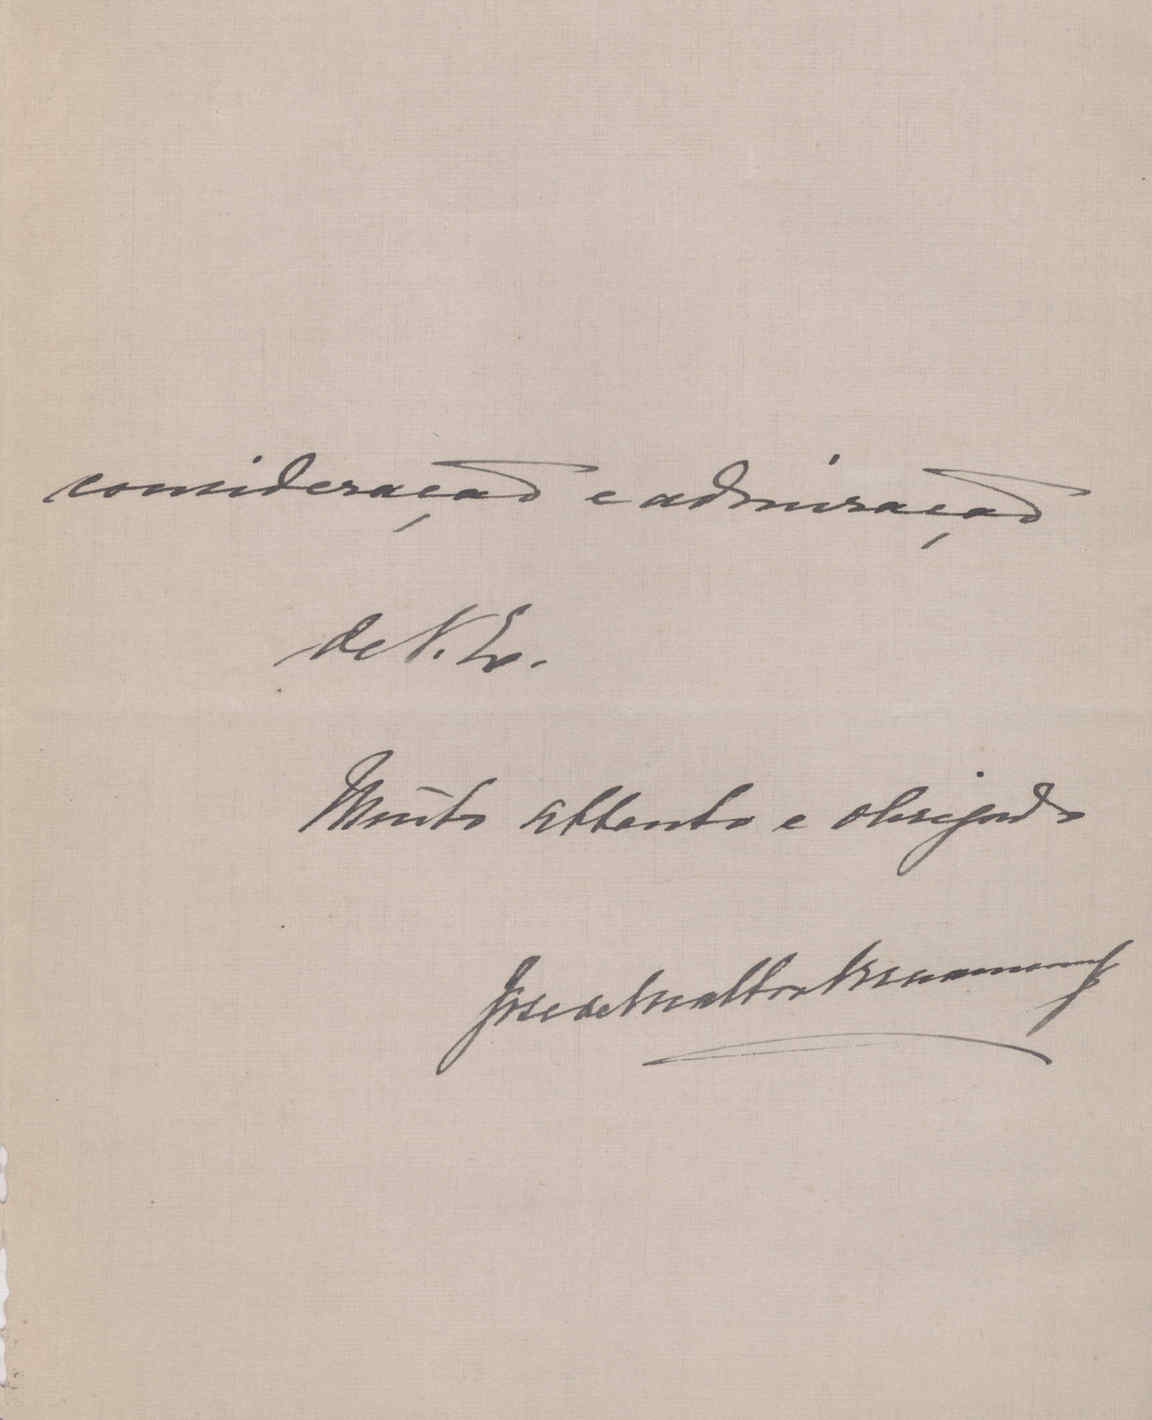 consideração e admiração
de V. Ex.
Muito attento e obrigado
José de Mattos